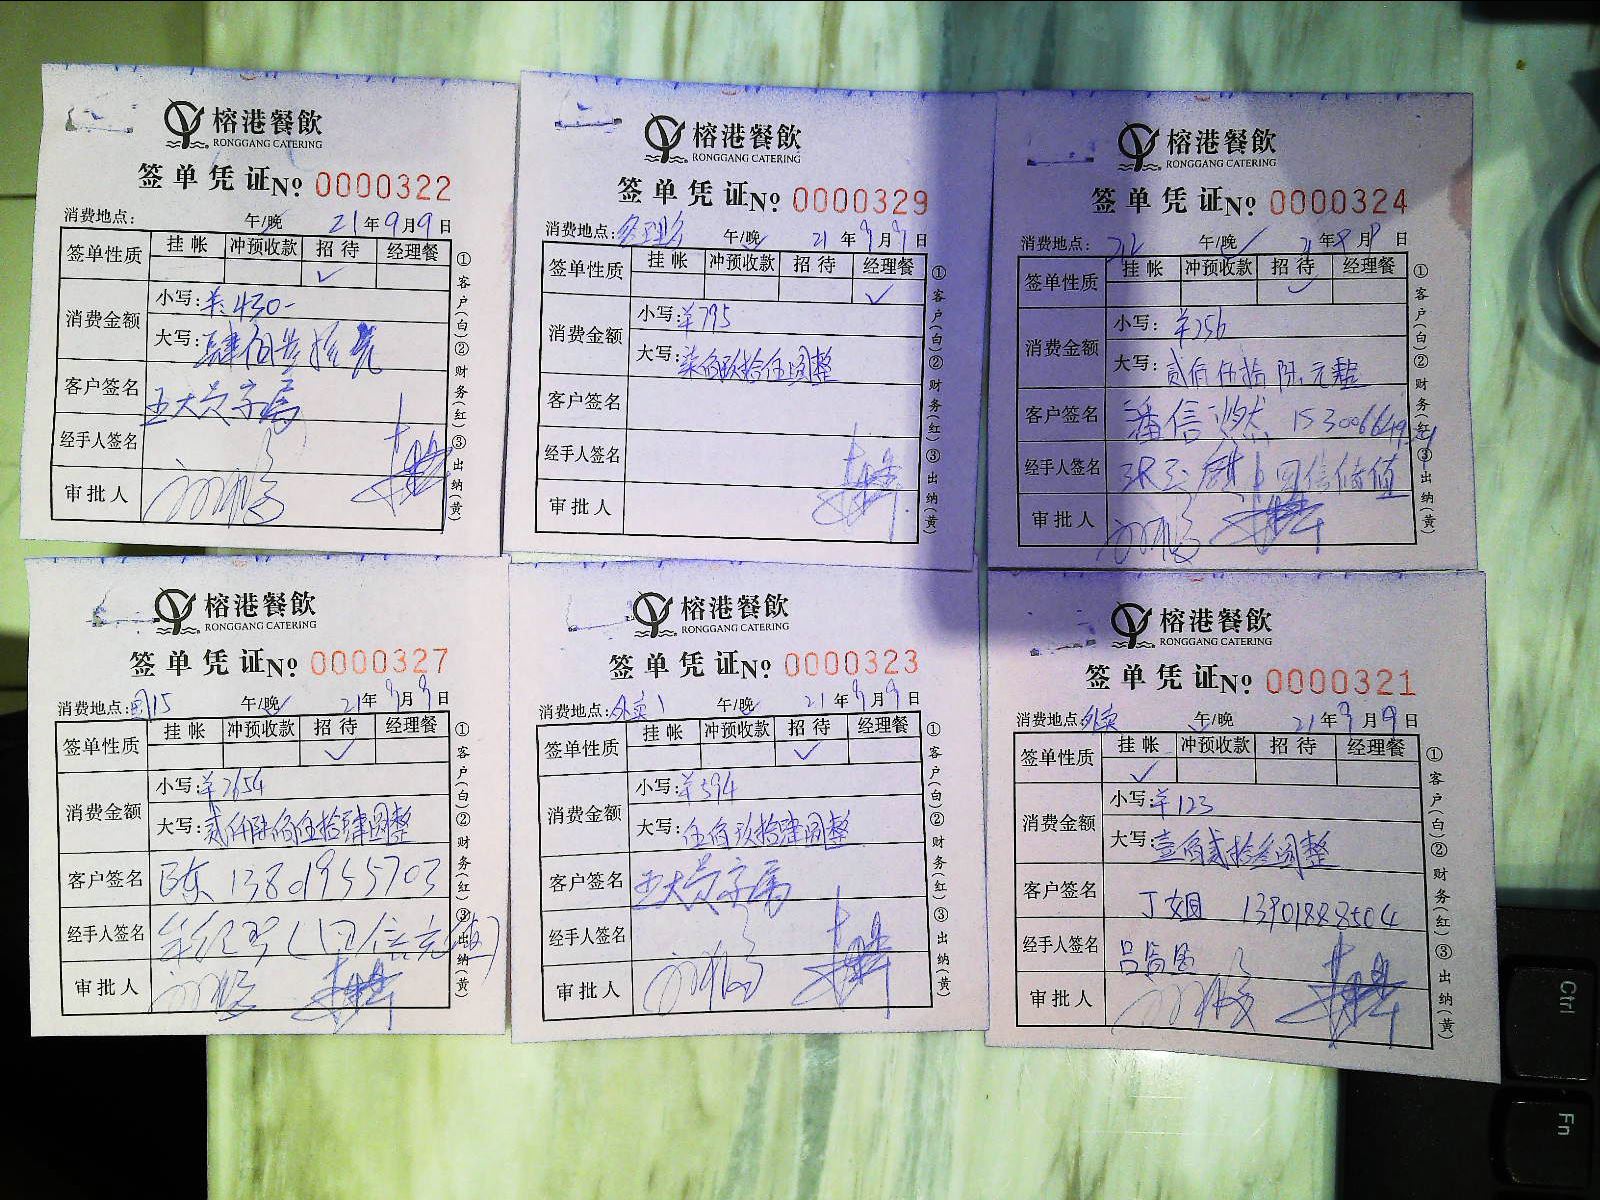 榕港餐飲
RONGGANG CATERING
签单凭证No 0000322
消费地点: 午/晚 21年9月9日
签单性质 挂帐 冲预收款 招待 经理餐
✓
消费金额 小写: ¥430-
大写: 肆佰叁拾元
客户签名
经手人签名
审批人
①客户(白)②财务(红)③出纳(黄)
榕港餐飲
RONGGANG CATERING
签单凭证No 0000329
消费地点: 午/晚 21年9月9日
签单性质 挂帐 冲预收款 招待 经理餐
✓
消费金额 小写: ¥795
大写: 柒佰玖拾伍圆整
客户签名
经手人签名
审批人
①客户(白)②财务(红)③出纳(黄)
榕港餐飲
RONGGANG CATERING
签单凭证No 0000324
消费地点: 午/晚 年 月 日
签单性质 挂帐 冲预收款 招待 经理餐
✓
消费金额 小写: ¥256
大写: 贰佰伍拾陆元整
客户签名 潘信燃
经手人签名
审批人
①客户(白)②财务(红)③出纳(黄)
榕港餐飲
RONGGANG CATERING
签单凭证No 0000327
消费地点: 15 午/晚 21年9月9日
签单性质 挂帐 冲预收款 招待 经理餐
✓
消费金额 小写: ¥2654
大写: 贰仟陆佰伍拾肆圆整
客户签名 陈 13801955703
经手人签名
审批人
①客户(白)②财务(红)③出纳(黄)
榕港餐飲
RONGGANG CATERING
签单凭证No 0000323
消费地点: 外卖1 午/晚 21年9月9日
签单性质 挂帐 冲预收款 招待 经理餐
✓
消费金额 小写: ¥594
大写: 伍佰玖拾肆圆整
客户签名
经手人签名
审批人
①客户(白)②财务(红)③出纳(黄)
榕港餐飲
RONGGANG CATERING
签单凭证No 0000321
消费地点: 外卖 午/晚 21年9月9日
签单性质 挂帐 冲预收款 招待 经理餐
✓
消费金额 小写: ¥123
大写: 壹佰贰拾叁圆整
客户签名 丁姐 13901888504
经手人签名
审批人
①客户(白)②财务(红)③出纳(黄)
Ctrl
Fn